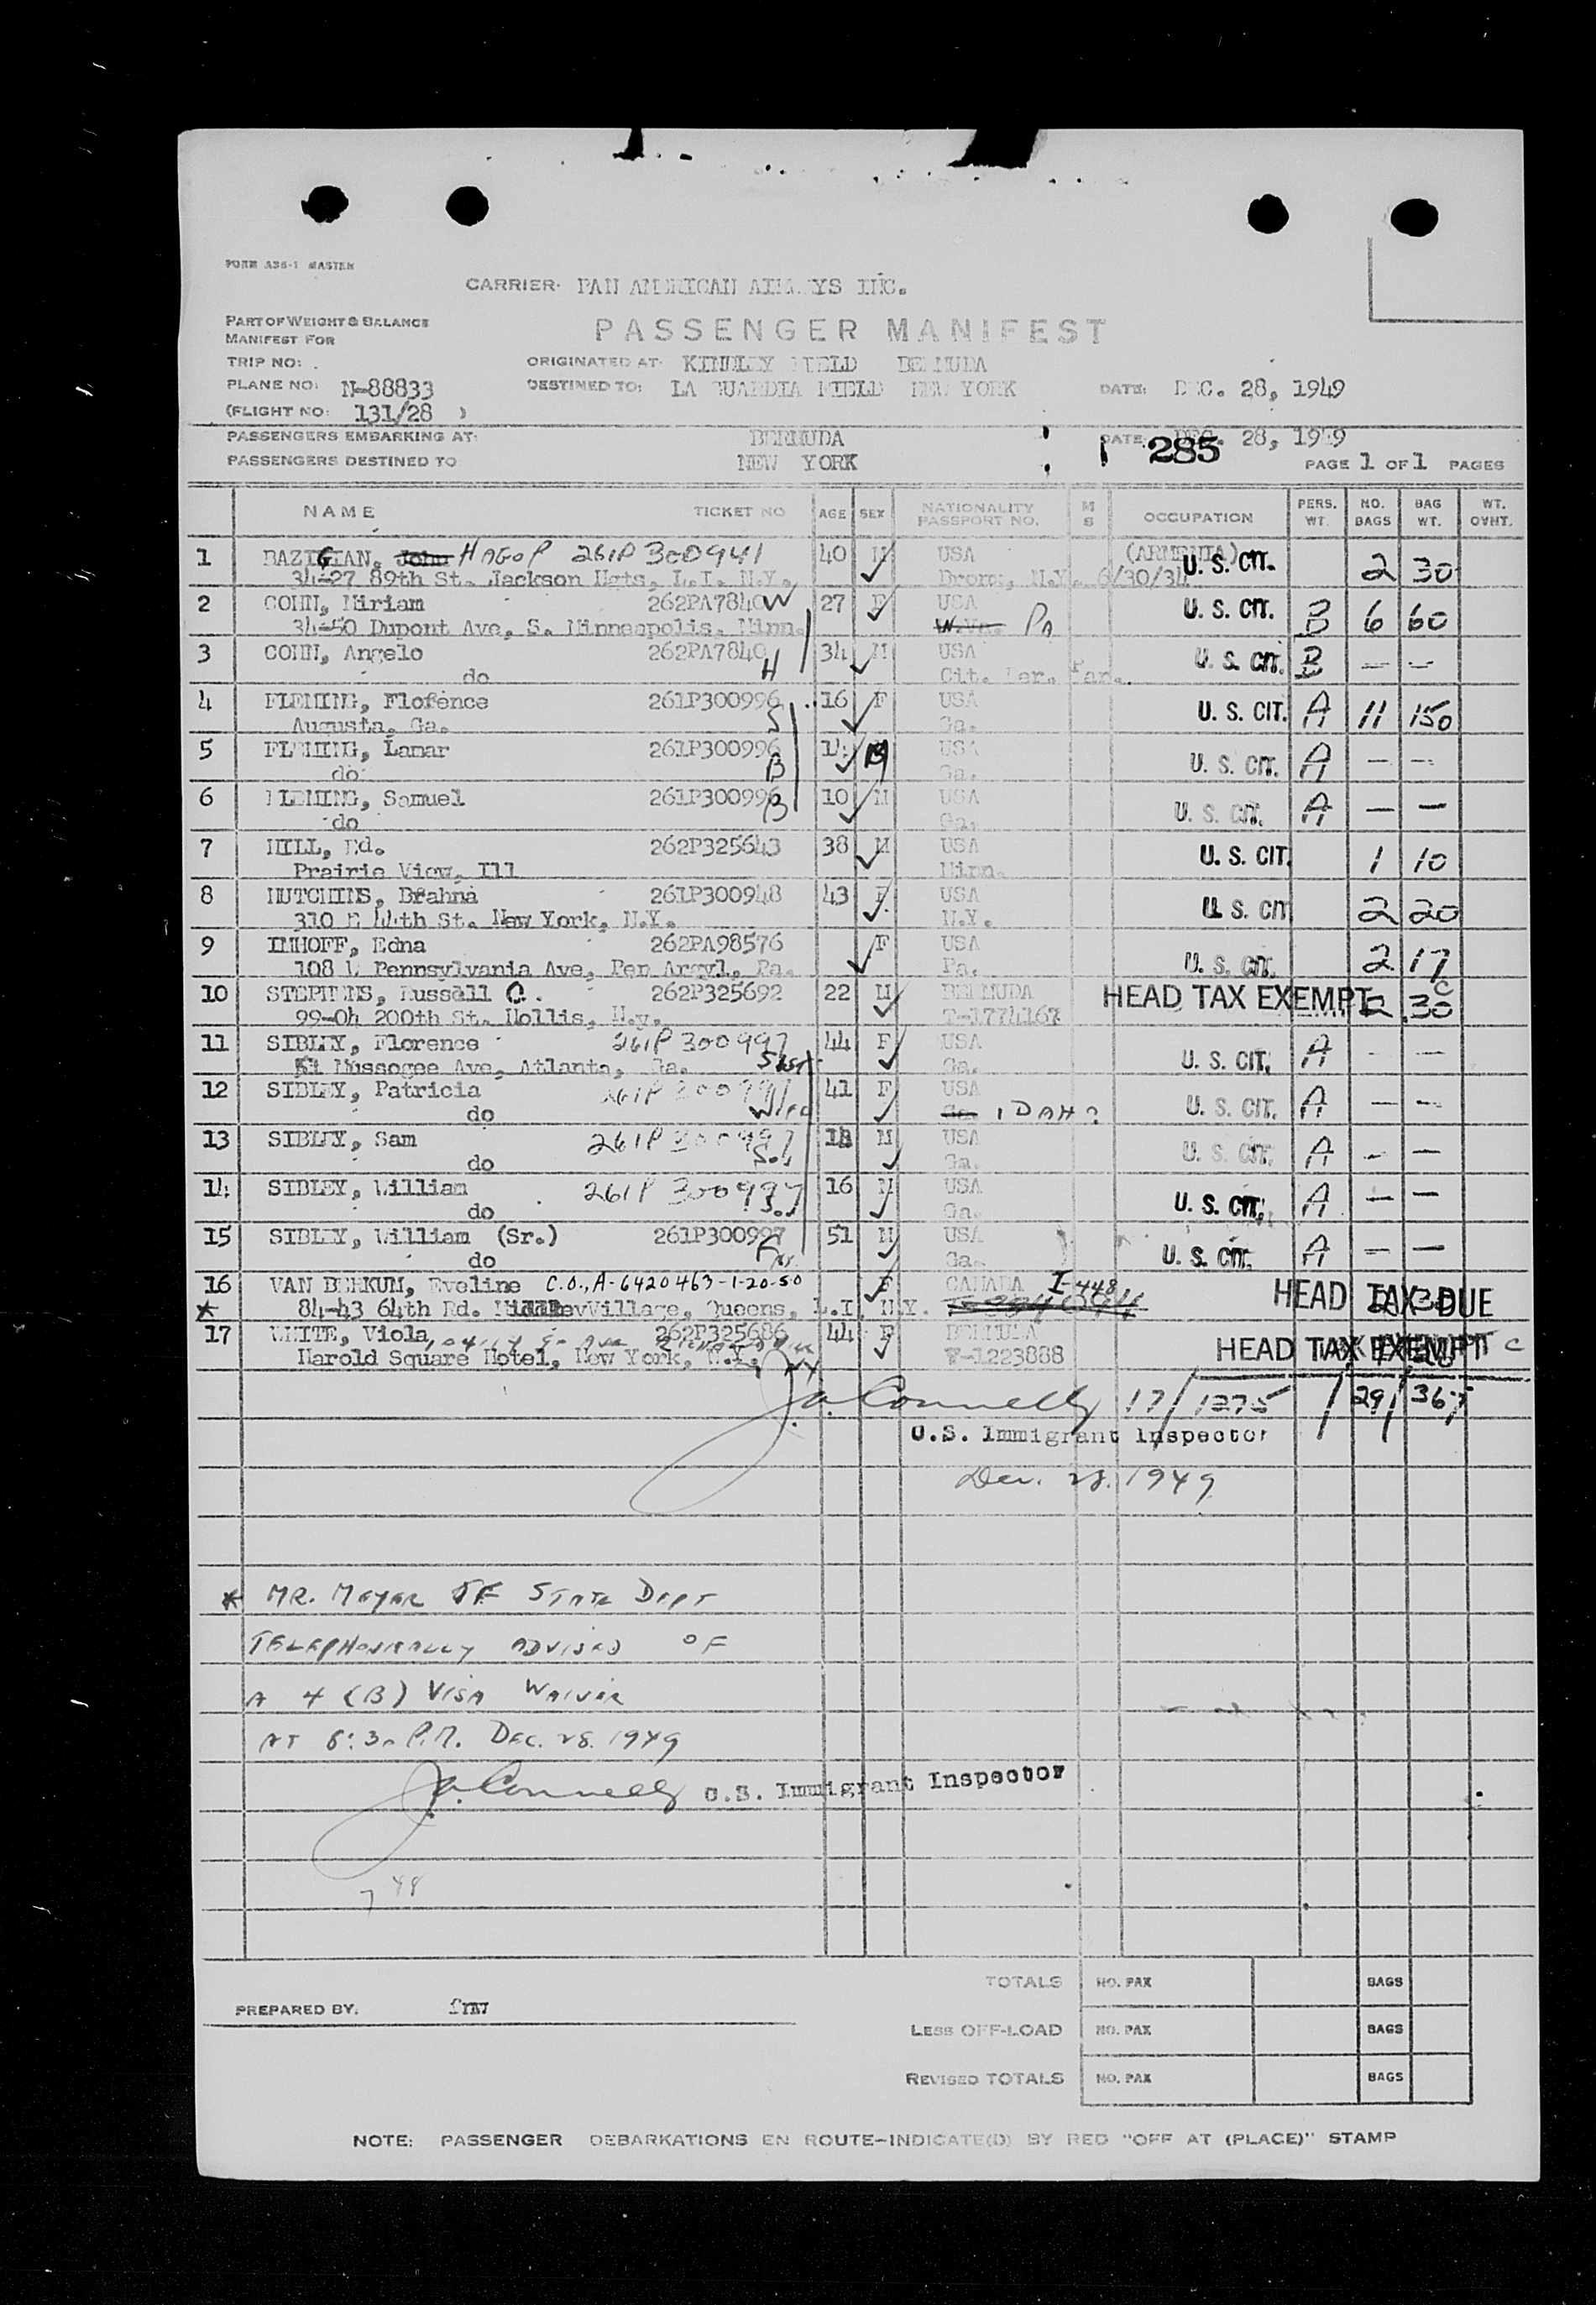 FORM A36-1 MASTER
CARRIER: PAN AMERICAN AIRWAYS INC.
PART OF WEIGHT & BALANCE
MANIFEST FOR
PASSENGER MANIFEST
TRIP NO:
ORIGINATED AT: KINDLEY FIELD BERMUDA
PLANE NO: N-88833
DESTINED TO: LA GUARDIA FIELD NEW YORK DATE: DEC. 28, 1949
(FLIGHT NO: 131/28 )
PASSENGERS EMBARKING AT: BERMUDA DATE: DEC. 28, 1949
285
PASSENGERS DESTINED TO NEW YORK PAGE 1 OF 1 PAGES
NAME TICKET NO AGE SEX NATIONALITY PASSPORT NO. M S OCCUPATION PERS. WT. NO. BAGS BAG WT. WT. OVHT.
1 BAZIGIAN, John HAGOP 261P300941 40 M USA (ARMENIA) U. S. CIT. 2 30
34-27 89th St. Jackson Hgts, L.I. N.Y. Bronx, N.Y. 6/30/34
2 COHN, Miriam 262PA7840 W 27 F USA U. S. CIT. B 6 60
34-50 Dupont Ave, S. Minneapolis, Minn. W.Va. PA
3 COHN, Angelo 262PA7840 H 34 M USA U. S. CIT. B — —
do Cit. Per. Par.
4 FLEMING, Florence 261P300996 S 16 F USA U. S. CIT. A 11 150
Augusta, Ga. Ga.
5 FLEMING, Lamar 261P300996 B 14 M USA U. S. CIT. A — —
do Ga.
6 FLEMING, Samuel 261P300996 B 10 M USA U. S. CIT. A — —
do Ga.
7 HILL, Ed. 262P325643 38 M USA U. S. CIT. 1 10
Prairie View, Ill Minn.
8 HUTCHINS, Brahna 261P300948 43 F USA U. S. CIT 2 20
310 E 44th St. New York, N.Y. N.Y.
9 IMHOFF, Edna 262PA98576 F USA U. S. CIT. 2 17
108 L Pennsylvania Ave, Pen Argyl, Pa. Pa.
10 STEPHENS, Russell O. 262P325692 22 M BERMUDA HEAD TAX EXEMPT C 2 30
99-04 200th St. Hollis, N.y. T-1774167
11 SIBLEY, Florence 261P300997 44 F USA U. S. CIT. A — —
51 Mussogee Ave, Atlanta, Ga. Sist Ga.
12 SIBLEY, Patricia 261P300997 Wife 41 F USA U. S. CIT. A — —
do Ga. IDAHO
13 SIBLEY, Sam 261P300997 18 M USA U. S. CIT. A — —
do Ga.
14 SIBLEY, William 261P300997 16 M USA U. S. CIT. A — —
do Ga.
15 SIBLEY, William (Sr.) 261P300997 51 M USA U. S. CIT. A — —
do Ga.
16 VAN BERKUM, Eveline C.O., A-6420463-1-20-50 F CANADA I-448 HEAD TAX DUE
* 84-43 64th Rd. Middle Village, Queens, L.I. N.Y.
17 WHITE, Viola, 262P325686 44 F BERMUDA HEAD TAX EXEMPT C
Harold Square Hotel, New York, N.Y. T-1223888
J. A. Connelly 17/1275 / 29/ 367
U.S. Immigrant Inspector
Dec. 28. 1949
* MR. MEYER OF STATE DEPT
TELEPHONICALLY ADVISED OF
A 4 (B) VISA WAIVER
AT 6:30 P.M. DEC. 28. 1949
J. A. Connelly U.S. Immigrant Inspector
48
7
TOTALS NO. PAX BAGS
PREPARED BY.
LESS OFF-LOAD NO. PAX BAGS
REVISED TOTALS NO. PAX BAGS
NOTE: PASSENGER DEBARKATIONS EN ROUTE-INDICATE(D) BY RED "OFF AT (PLACE)" STAMP